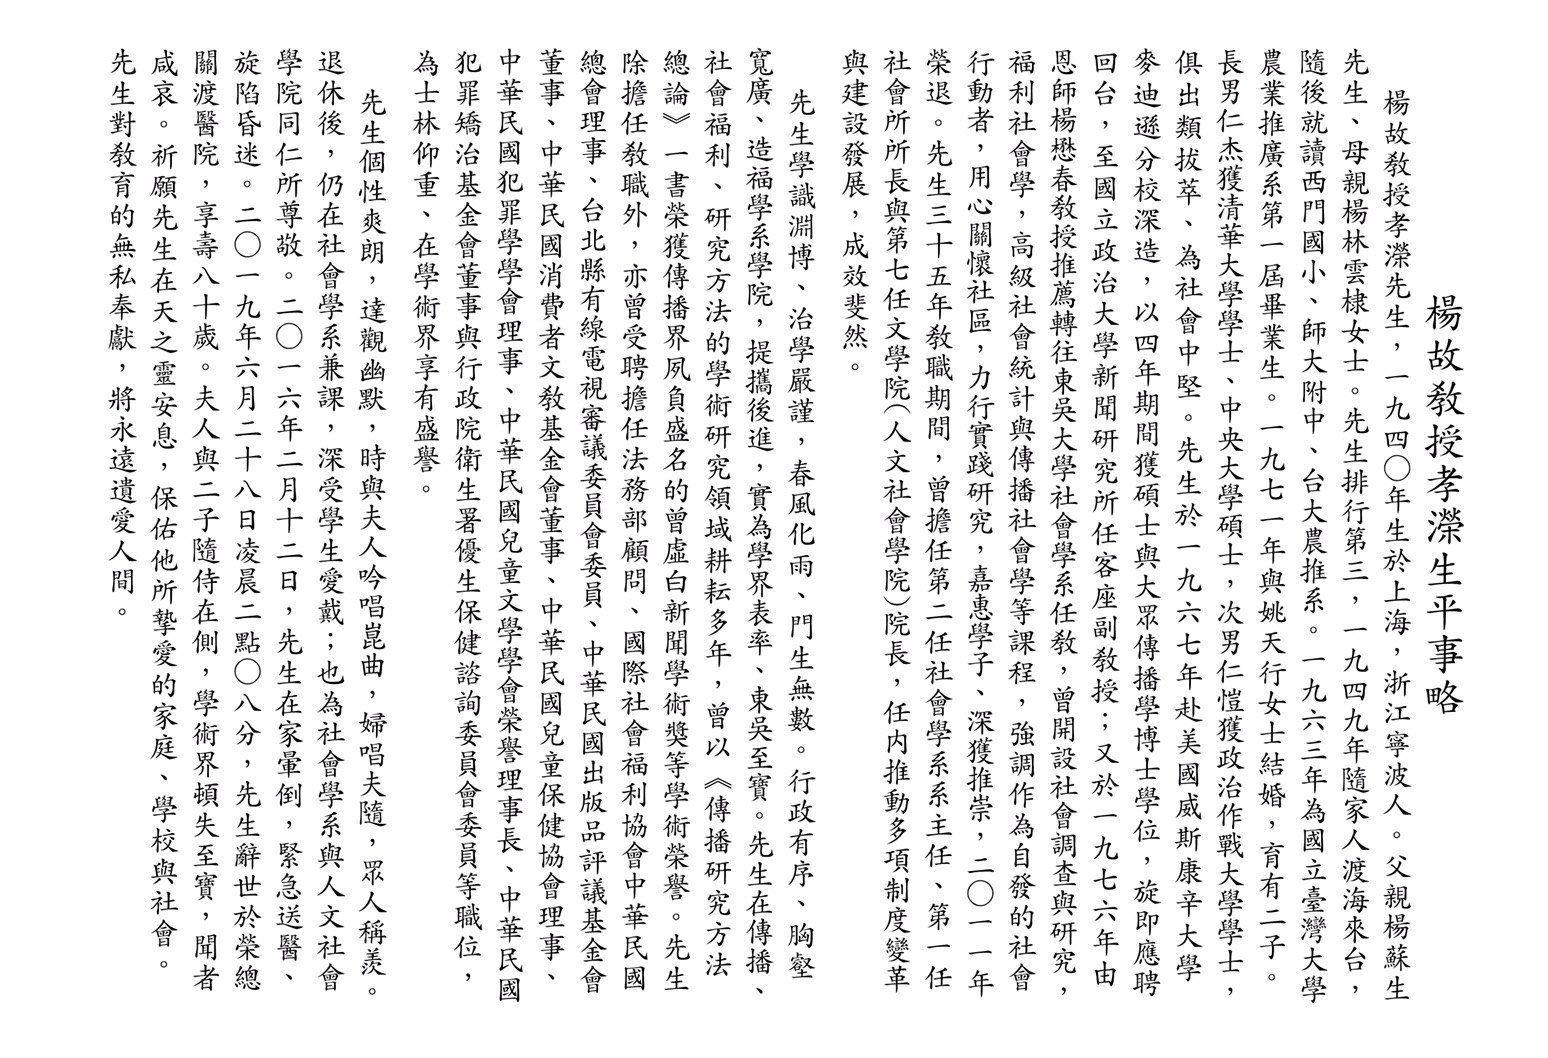 楊故教授孝濚生平事略
楊故教授孝濚先生，一九四〇年生於上海，浙江寧波人。父親楊蘇生
先生、母親楊林雲棣女士。先生排行第三，一九四九年隨家人渡海來台，
隨後就讀西門國小、師大附中、台大農推系。一九六三年為國立臺灣大學
農業推廣系第一屆畢業生。一九七一年與姚天行女士結婚，育有二子。
長男仁杰獲清華大學學士、中央大學碩士，次男仁愷獲政治作戰大學學士，
俱出類拔萃、為社會中堅。先生於一九六七年赴美國威斯康辛大學
麥迪遜分校深造，以四年期間獲碩士與大眾傳播學博士學位，旋即應聘
回台，至國立政治大學新聞研究所任客座副教授；又於一九七六年由
恩師楊懋春教授推薦轉往東吳大學社會學系任教，曾開設社會調查與研究，
福利社會學，高級社會統計與傳播社會學等課程，強調作為自發的社會
行動者，用心關懷社區，力行實踐研究，嘉惠學子、深獲推崇，二〇一一年
榮退。先生三十五年教職期間，曾擔任第二任社會學系系主任、第一任
社會所所長與第七任文學院（人文社會學院）院長，任內推動多項制度變革
與建設發展，成效斐然。
先生學識淵博、治學嚴謹，春風化雨、門生無數。行政有序、胸壑
寬廣、造福學系學院，提攜後進，實為學界表率、東吳至寶。先生在傳播、
社會福利、研究方法的學術研究領域耕耘多年，曾以《傳播研究方法
總論》一書榮獲傳播界夙負盛名的曾虛白新聞學術獎等學術榮譽。先生
除擔任教職外，亦曾受聘擔任法務部顧問、國際社會福利協會中華民國
總會理事、台北縣有線電視審議委員會委員、中華民國出版品評議基金會
董事、中華民國消費者文教基金會董事、中華民國兒童保健協會理事、
中華民國犯罪學學會理事、中華民國兒童文學學會榮譽理事長、中華民國
犯罪矯治基金會董事與行政院衛生署優生保健諮詢委員會委員等職位，
為士林仰重、在學術界享有盛譽。
先生個性爽朗，達觀幽默，時與夫人吟唱崑曲，婦唱夫隨，眾人稱羨。
退休後，仍在社會學系兼課，深受學生愛戴；也為社會學系與人文社會
學院同仁所尊敬。二〇一六年二月十二日，先生在家暈倒，緊急送醫、
旋陷昏迷。二〇一九年六月二十八日凌晨二點〇八分，先生辭世於榮總
關渡醫院，享壽八十歲。夫人與二子隨侍在側，學術界頓失至寶，聞者
咸哀。祈願先生在天之靈安息，保佑他所摯愛的家庭、學校與社會。
先生對教育的無私奉獻，將永遠遺愛人間。